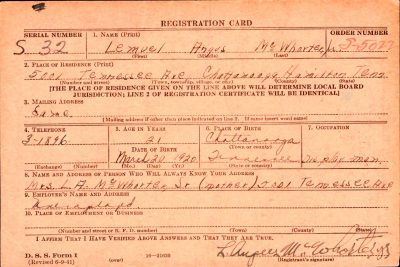 REGISTRATION CARD
SERIAL NUMBER 1. NAME (Print) ORDER NUMBER
S 32 Lemuel Angus McWhorter S-3027
(First) (Middle) (Last)
2. PLACE OF RESIDENCE (Print)
5001 Tennessee Ave Chattanooga Hamilton Tenn
(Number and street) (Town, township, village, or city) (County) (State)
[THE PLACE OF RESIDENCE GIVEN ON THE LINE ABOVE WILL DETERMINE LOCAL BOARD
JURISDICTION; LINE 2 OF REGISTRATION CERTIFICATE WILL BE IDENTICAL]
3. MAILING ADDRESS
Same
[Mailing address if other than place indicated on line 2. If same insert word same]
4. TELEPHONE 5. AGE IN YEARS 6. PLACE OF BIRTH 7. OCCUPATION
3-1896 21 Chattanooga
DATE OF BIRTH (Town or county)
March 24 1920 Tennessee
(Exchange) (Number) (Mo.) (Day) (Yr.) (State or country)
8. NAME AND ADDRESS OF PERSON WHO WILL ALWAYS KNOW YOUR ADDRESS
Mrs. L. A. McWhorter Sr (mother) 5001 Tennessee Ave
9. EMPLOYER'S NAME AND ADDRESS
10. PLACE OF EMPLOYMENT OR BUSINESS
(Number and street or R. F. D. number) (Town) (County) (State)
I AFFIRM THAT I HAVE VERIFIED ABOVE ANSWERS AND THAT THEY ARE TRUE.
D. S. S. Form 1
(Revised 6-9-41) (Registrant's signature)